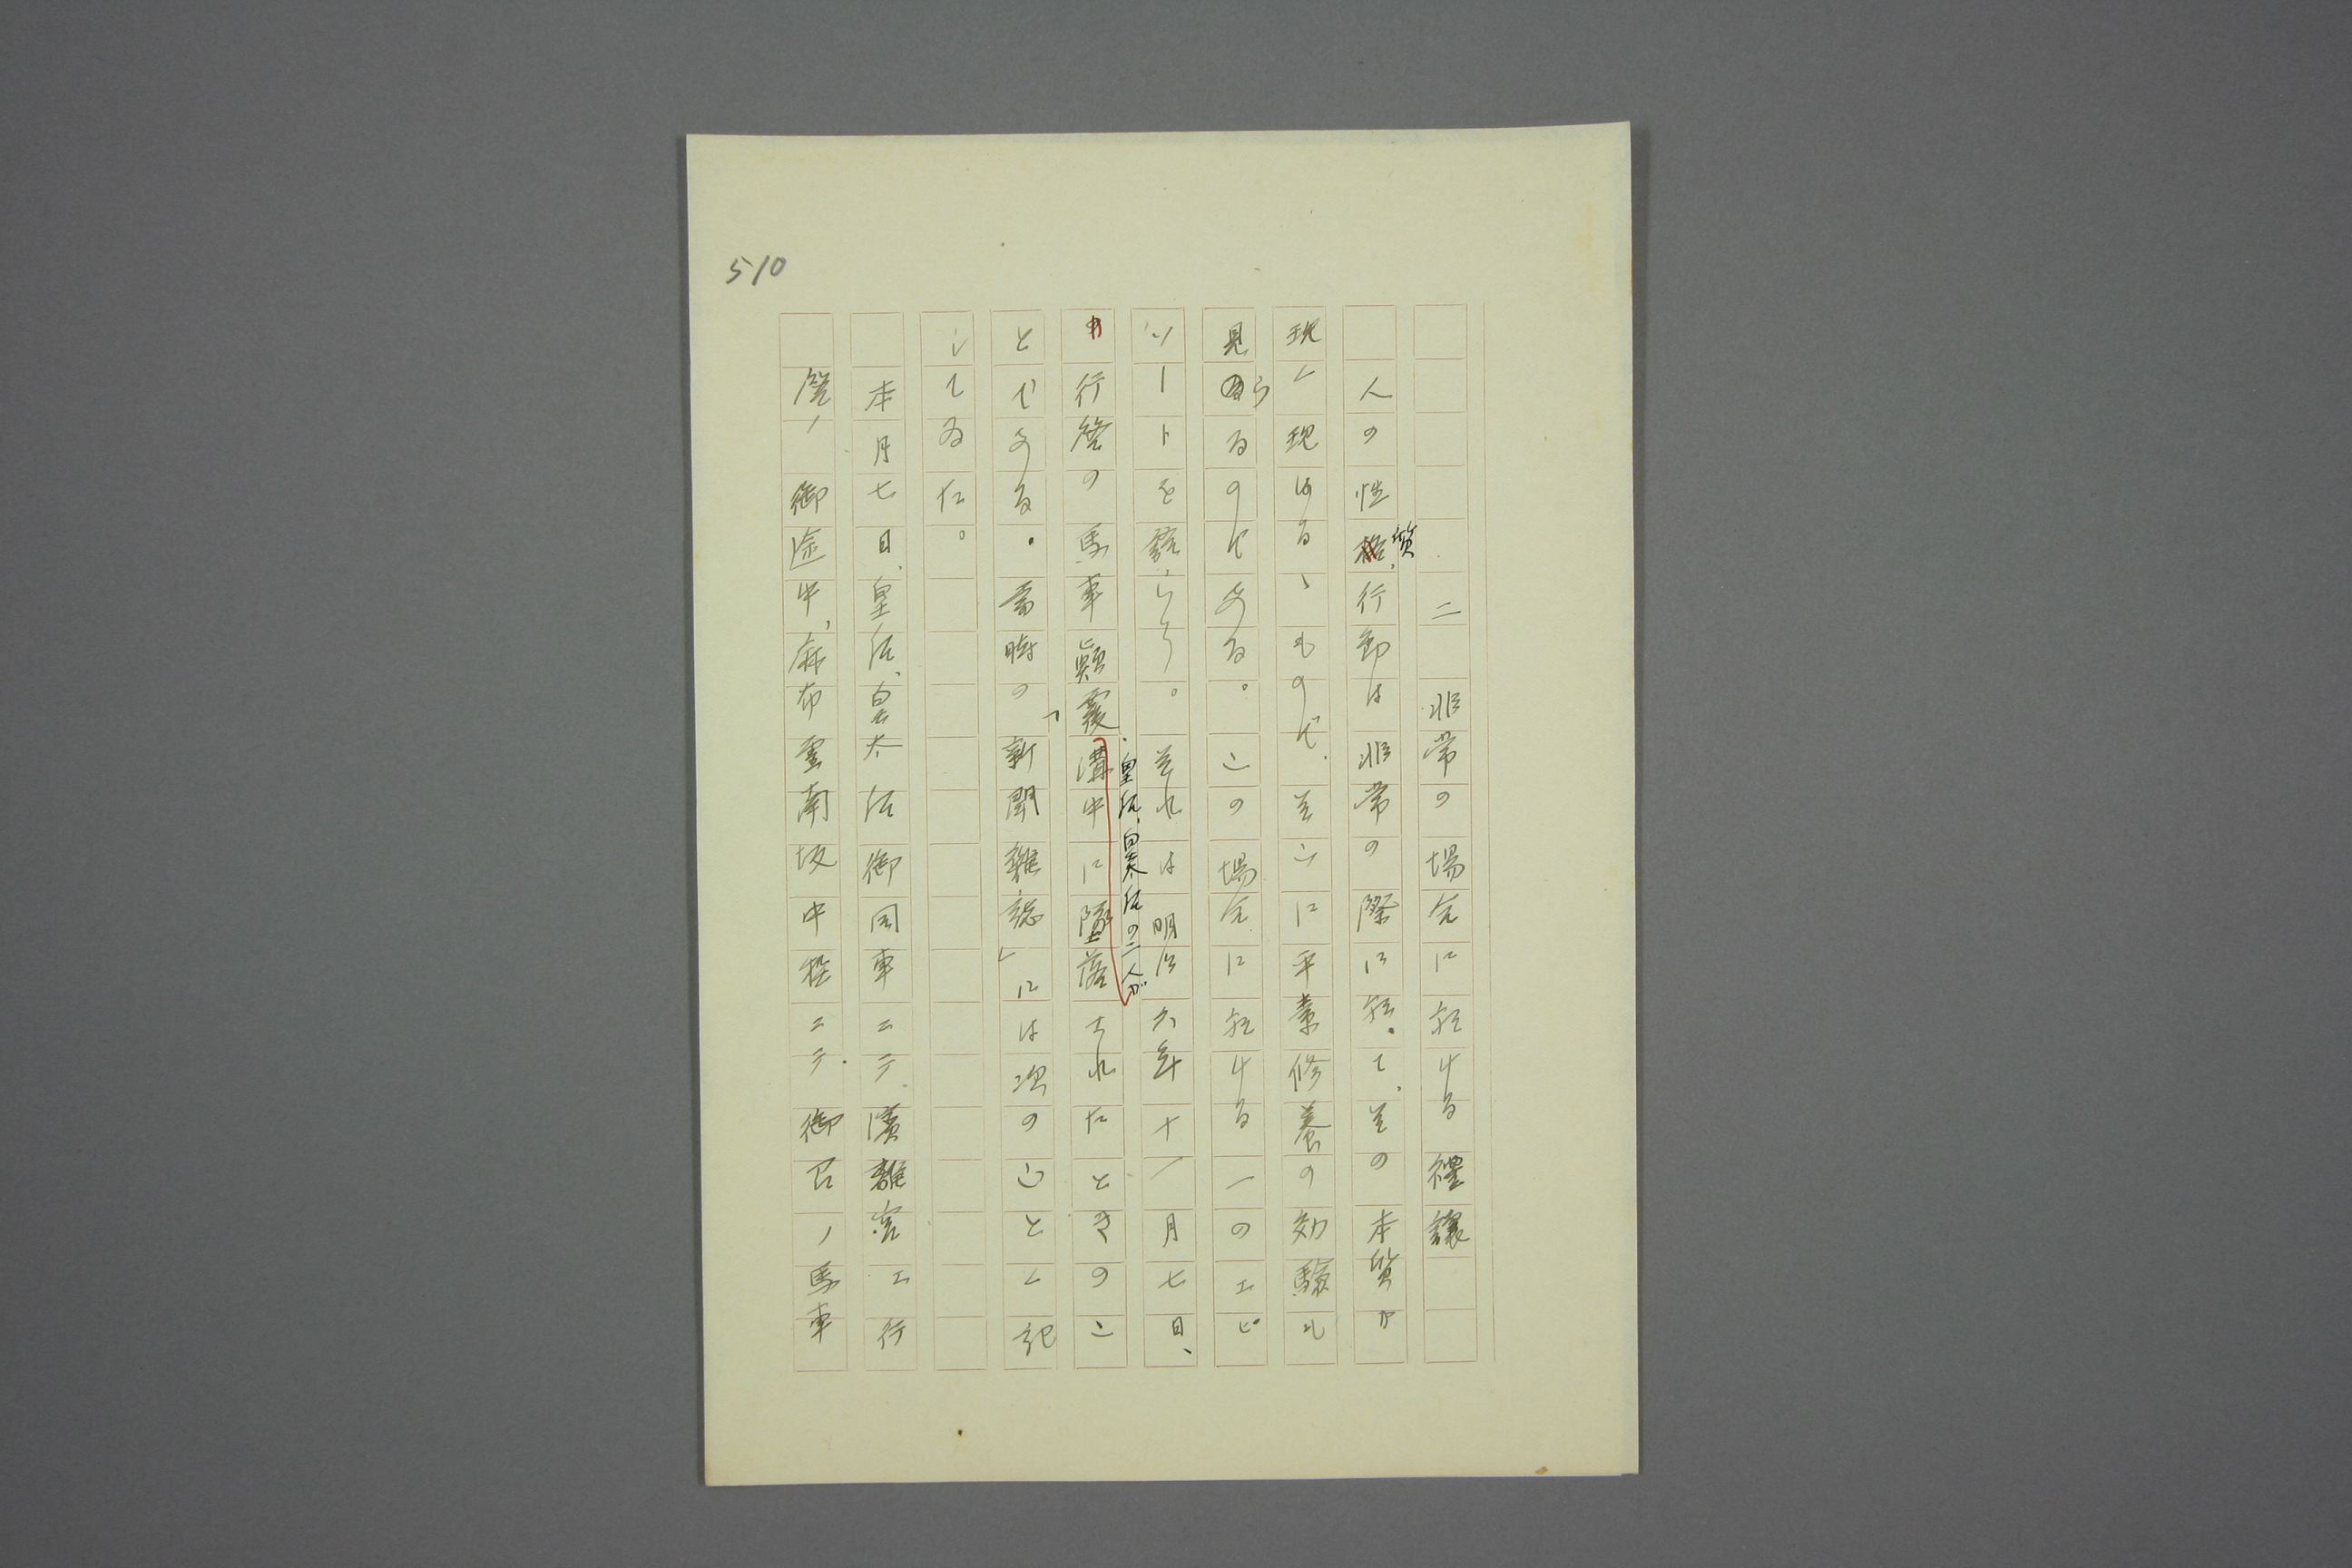 510
二　非常の場合に於ける禮讓
人の性質、行動は非常の際に於て、其の本質が
現し現はるゝもので、其こに平素修養の効驗も
見らるのである。この場合に於ける一のエピ
ソードを語らう。其れは明治六年十一月七日、
行啓の馬車顚覆、皇后、皇太后の二人が溝中に墮落されたときのこ
とである。當時の「新聞雜誌」には次のごとく記
してゐた。
本月七日、皇后、皇太后御同車ニテ、濱離宮エ行
啓ノ御途中、麻布霊南坂中程ニテ、御召ノ馬車